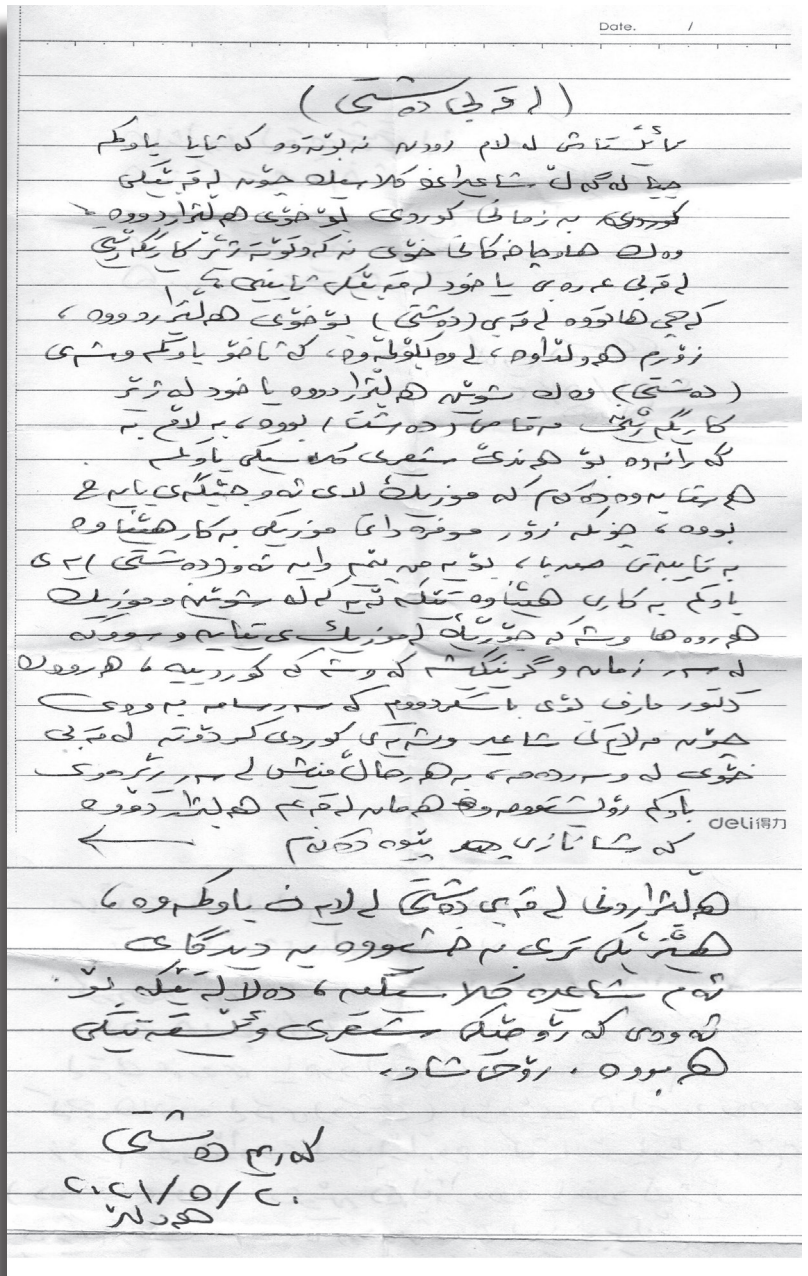 Date. /
(لەقەبی دەشتی)
تائێستاش لە لام روون نەبۆتەوە کە ئایا باوکم
جیا لەگەڵ شاعیرانی کلاسیک چۆن لەقەبێکی
کوردی بە زمانی کوردی بۆ خۆی هەڵبژاردووە
وەک هاوچاخەکانی خۆی نەکەوتۆتە ژێر کاریگەرێتی
لەقەبی عەرەبی یاخود لەقەبێکی ئاینی
کەچی هاتووە لەقەبی (دەشتی) بۆ خۆی هەڵبژاردووە،
زۆرم هەوڵداوە، لەوە بکۆڵمەوە، کە ئاخۆ باوکم وشەی
(دەشتی) وەک شوێن هەڵبژاردووە یاخود لە ژێر
کاریگەرێتی مەقامی (دەشت) بووە، بەلام بە
گەرانەوە بۆ هەندێ شعری کلاسیکی باوکم
هەستا بەوە دەکەم کە موزیک لای ئەو جێگەی بایەخ
بووە، چونکە زۆر موفرەداتی موزیکی بەکارهێناوە
بە تایبەتی صەبا، بۆیە من پێم وایە ئەو (دەشتی) یەی
باوکم بە کاری هێناوە تێکەڵەیەکە لە شوێن و موزیک
هەروەها وشەکە جۆرێک لە موزیکی تیایە و سووکە
لەسەر زمان و گرنگیشە کە وشەکە کوردییە، هەروەک
دکتۆر مارف بۆی باسکردووم کە سەرسامە بەوەی
چۆن مەلایەکی شاعیر وشەیەکی کوردی کردۆتە لەقەبی
خۆی لەو سەردەمە، بەهەرحاڵ منیش لەسەر رێرەوی
باوکم رۆیشتووم و هەمان لەقەبم هەڵبژاردووە
deli得力
کە شانازی پێوە دەکەم
هەڵبژاردنی لەقەبی دەشتی لەلایەن باوکمەوە،
هێزێکی تری بەخشیووە بە دیدگای
ئەم شاعیرە کلاسیکییە، دەلالەتێکە بۆ
ئەوەی کە رۆحێکی شعری وئێستەتیکی
هەبووە. رۆحی شاد.
کەریم دەشتی
٢٠٢١/٥/٢٠
هەولێر